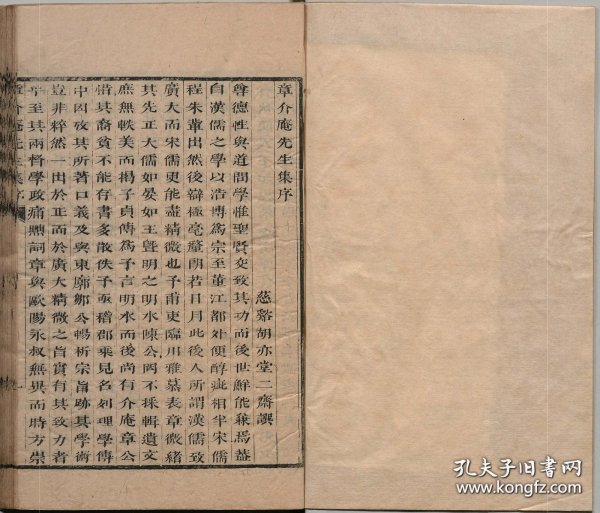 章介庵先生集序
慈谿胡亦堂二齋譔
尊德性與道問學惟聖賢交致其功而後世鮮能兼焉蓋
自漢儒之學以浩博爲宗至董江都外便醇疵相半宋儒
程朱輩出然後辯極毫釐朗若日月此後人所謂漢儒致
廣大而宋儒更能盡精微也予甫吏臨川雅慕表章微緒
其先正大儒如晏如王暨明之明水陳公罔不採輯遺文
庶無軼美而揭子貞傳爲予言明水而後尚有介庵章公
惜其裔貧不能存書多散佚予亟稽郡乘見名列理學傳
中因攷其所著口義及與東廓鄒公暢析宗旨跡其學術
豈非粹然一出於正而於廣大精微之旨實有其致力者
乎至其兩督學政痛黜詞章與歐陽永叔無異而時方崇
章介庵先生集序
孔夫子旧书网
www.kongfz.com